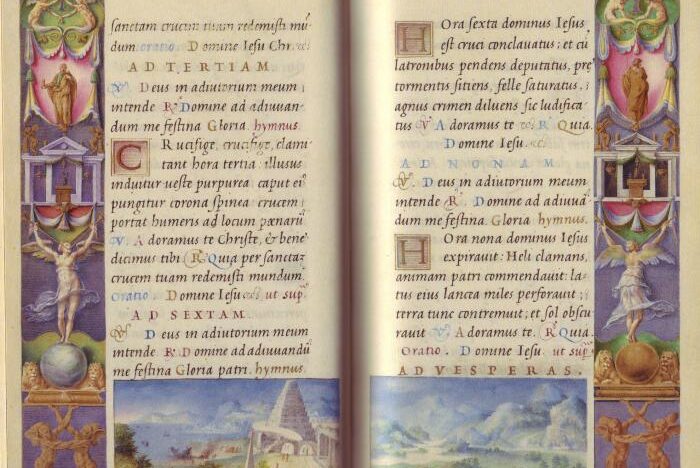 sanctam crucem tuam redemisti mu⸗
dum. oratio. Domine Iesu Chr. ...
AD TERTIAM
V. Deus in adiutorium meum
intende R. Domine ad adiuuan⸗
dum me festina Gloria. hymnus.
Crucifige, crucifige, clami⸗
tant hora tertia: illusus
induitur ueste purpurea: caput ei⸗
pungitur corona spinea: crucem
portat humeris ad locum pænarũ
V. Adoramus te Christe, & bene⸗
dicimus tibi R. Quia per sanctaz
crucem tuam redemisti mundum.
Oratio. Domine Iesu ut sup̃
AD SEXTAM
V. Deus in adiutorium meum
intende R. Domine ad adiuuandũ
me festina Gloria patri. hymnus.
Hora sexta dominus Iesus
est cruci conclauatus: et cũ
latronibus pendens deputatus, pre
tormentis sitiens, felle saturatus:
agnus crimen diluens sic ludifica⸗
tus V. Adoramus te R. Quia.
Domine Iesu.
AD NONAM
V. Deus in adiutorium meum
intende R. Domine ad adiuuan
dum me festina. Gloria hymnus.
Hora nona dominus Iesus
expirauit: Heli clamans,
animam patri commendauit: la⸗
tus eius lancea miles perforauit:
terra tunc contremuit: et sol obscu
rauit V. Adoramus te. R. Quia.
Oratio. Domine Iesu. ut sup̃
AD VESPERAS.